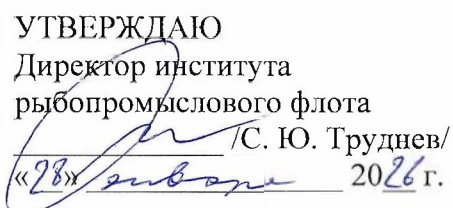 УТВЕРЖДАЮ
Директор института
рыбопромыслового флота
/С. Ю. Труднев/
«28» января 2026 г.